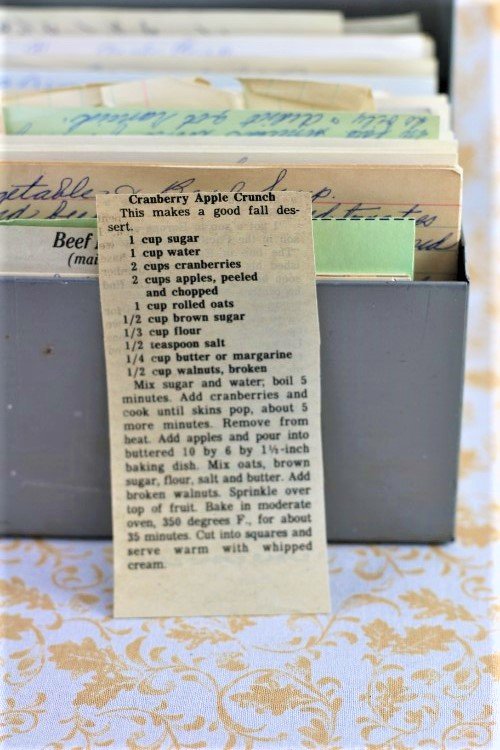 a dinner get honist.
getables & Beef Soup.
Beef
(mai
Cranberry Apple Crunch
This makes a good fall des-
sert.
1 cup sugar
1 cup water
2 cups cranberries
2 cups apples, peeled
and chopped
1 cup rolled oats
1/2 cup brown sugar
1/3 cup flour
1/2 teaspoon salt
1/4 cup butter or margarine
1/2 cup walnuts, broken
Mix sugar and water; boil 5
minutes. Add cranberries and
cook until skins pop, about 5
more minutes. Remove from
heat. Add apples and pour into
buttered 10 by 6 by 1½-inch
baking dish. Mix oats, brown
sugar, flour, salt and butter. Add
broken walnuts. Sprinkle over
top of fruit. Bake in moderate
oven, 350 degrees F., for about
35 minutes. Cut into squares and
serve warm with whipped
cream.